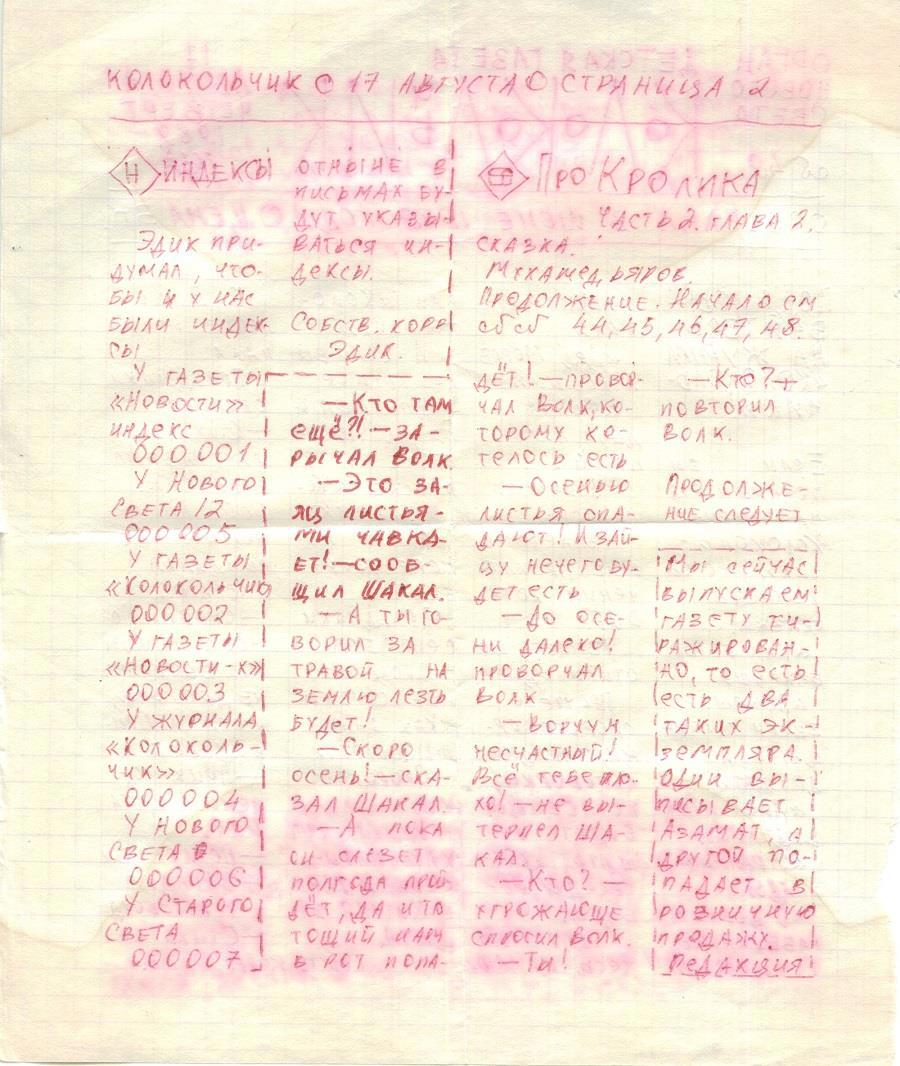 КОЛОКОЛЬЧИК 17 АВГУСТА СТРАНИЦА 2
Н ИНДЕКСЫ
ЭДИК ПРИ-
ДУМАЛ, ЧТО-
БЫ И У НАС
БЫЛИ ИНДЕК-
СЫ
У ГАЗЕТЫ
«НОВОСТИ»
ИНДЕКС
000001
У НОВОГО
СВЕТА 12
000005
У ГАЗЕТЫ
«КОЛОКОЛЬЧИК»
000002
У ГАЗЕТЫ
«НОВОСТИ-Х»
000003
У ЖУРНАЛА
«КОЛОКОЛЬ-
ЧИК»
000004
У НОВОГО
СВЕТА
000006
У СТАРОГО
СВЕТА
000007
ОТНЫНЕ В
ПИСЬМАХ БУ-
ДУТ УКАЗЫ-
ВАТЬСЯ ИН-
ДЕКСЫ.
СОБСТВ. КОРР
ЭДИК.
ПРО КРОЛИКА
ЧАСТЬ 2. ГЛАВА 2.
СКАЗКА.
ПРОДОЛЖЕНИЕ. НАЧАЛО СМ
44, 45, 46, 47, 48.
—КТО ТАМ
ЕЩЁ?!—ЗА-
РЫЧАЛ ВОЛК.
—ЭТО ЗА-
ЯЦ ЛИСТЬЯ-
МИ ЧАВКА-
ЕТ!—СООБ-
ЩИЛ ШАКАЛ.
—А ТЫ ГО-
ВОРИЛ ЗА
ТРАВОЙ НА
ЗЕМЛЮ ЛЕЗТЬ
БУДЕТ!
—СКОРО
ОСЕНЬ!—СКА-
ЗАЛ ШАКАЛ.
—А ПОКА
ОН СЛЕЗЕТ
ПОЛГОДА ПРОЙ-
ДЁТ, ДА И ТО
ТОЩИЙ НАМ
В РОТ ПОПА-
ДЁТ!—ПРОВОР-
ЧАЛ ВОЛК, КО-
ТОРОМУ ХО-
ТЕЛОСЬ ЕСТЬ
—ОСЕНЬЮ
ЛИСТЬЯ ОПА-
ДАЮТ! И ЗАЙ-
ЦУ НЕЧЕГО БУ-
ДЕТ ЕСТЬ
—ДО ОСЕ-
НИ ДАЛЕКО!
ПРОВОРЧАЛ
ВОЛК
—ВОРЧУН
НЕСЧАСТНЫЙ!
ВСЁ ТЕБЕ ПЛО-
ХО!—НЕ ВЫ-
ТЕРПЕЛ ША-
КАЛ.
—КТО?—
УГРОЖАЮЩЕ
СПРОСИЛ ВОЛК.
—ТЫ!
—КТО?—
ПОВТОРИЛ
ВОЛК.
ПРОДОЛЖЕ-
НИЕ СЛЕДУЕТ
МЫ СЕЙЧАС
ВЫПУСКАЕМ
ГАЗЕТУ ТИ-
РАЖИРОВАН-
НО, ТО ЕСТЬ
ЕСТЬ ДВА
ТАКИХ ЭК-
ЗЕМПЛЯРА.
ОДИН ВЫ-
ПИСЫВАЕТ
АЗАМАТ, А
ДРУГОЙ ПО-
ПАДАЕТ В
РОЗНИЧНУЮ
ПРОДАЖУ.
РЕДАКЦИЯ